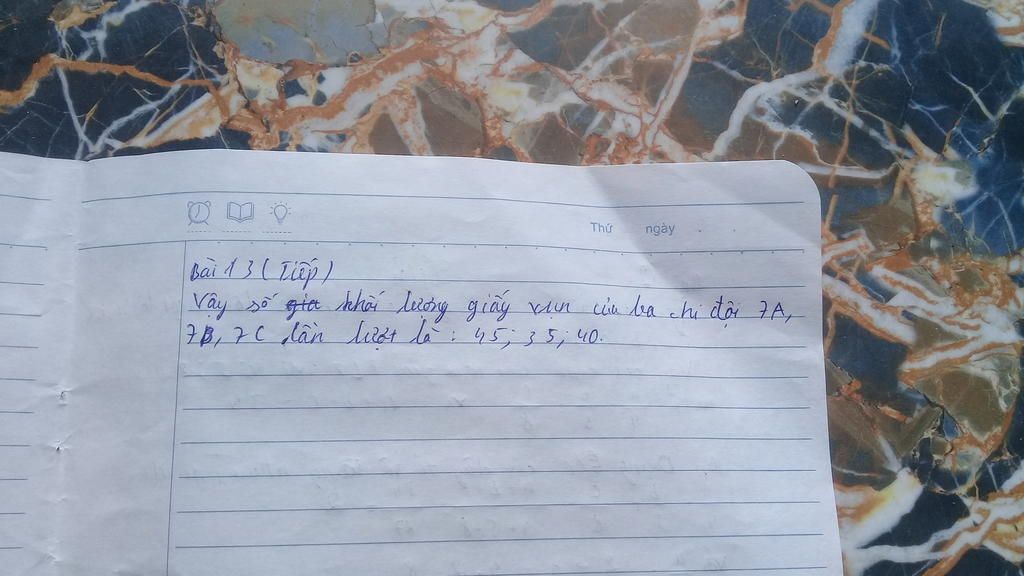 Thứ ngày
Bài 13 (Tiếp)
Vậy số gia khối lượng giấy vụn của ba chi đội 7A,
7B, 7C lần lượt là : 45; 35; 40.